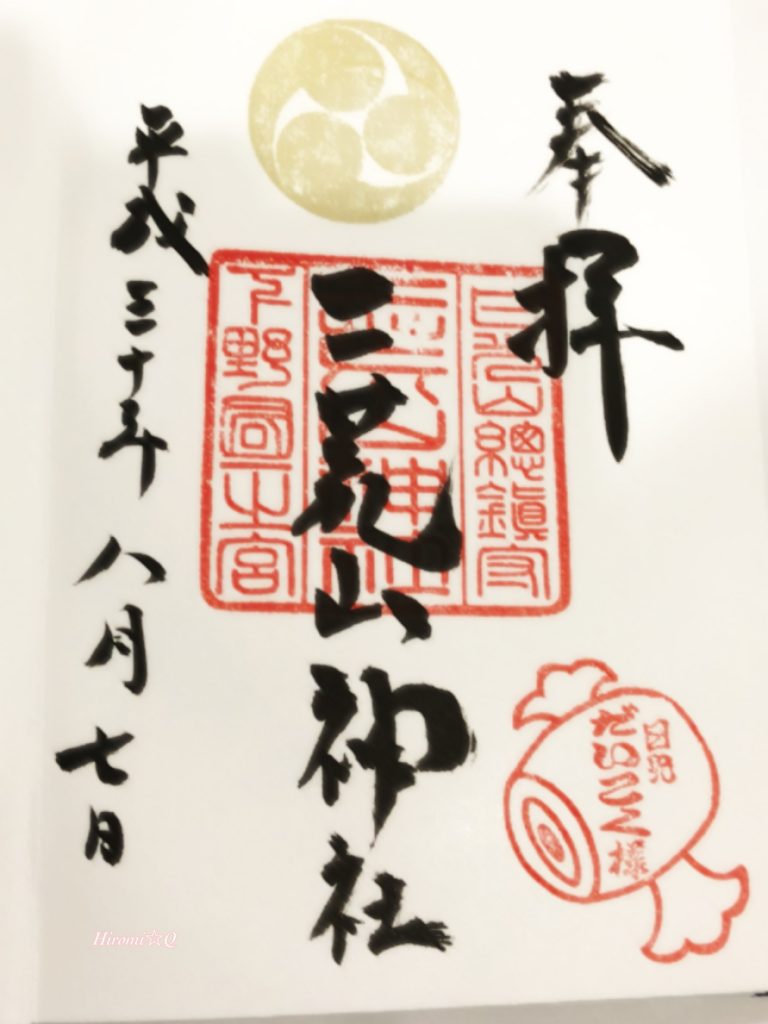 奉拝
日光山總鎮守
二荒山神社
二荒山神社
下野國一之宮
平成三十年八月七日
日光
だいこく様
Hiromi☆Q